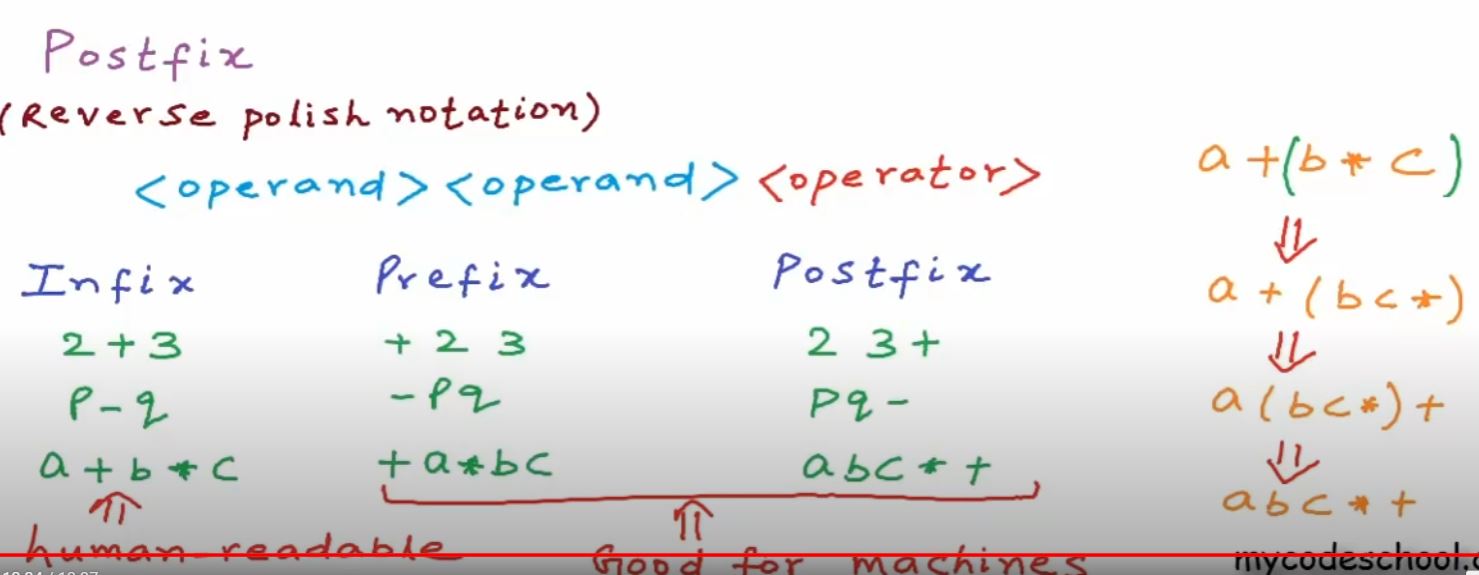 Postfix
(Reverse polish notation)
<operand> <operand> <operator>
Infix Prefix Postfix
2 + 3 + 2 3 2 3 +
p - q - p q p q -
a + b * c + a * b c a b c * +
human-readable Good for machines
a + (b * c)
⇓
a + (b c *)
⇓
a (b c *) +
⇓
a b c * +
mycodeschool.c